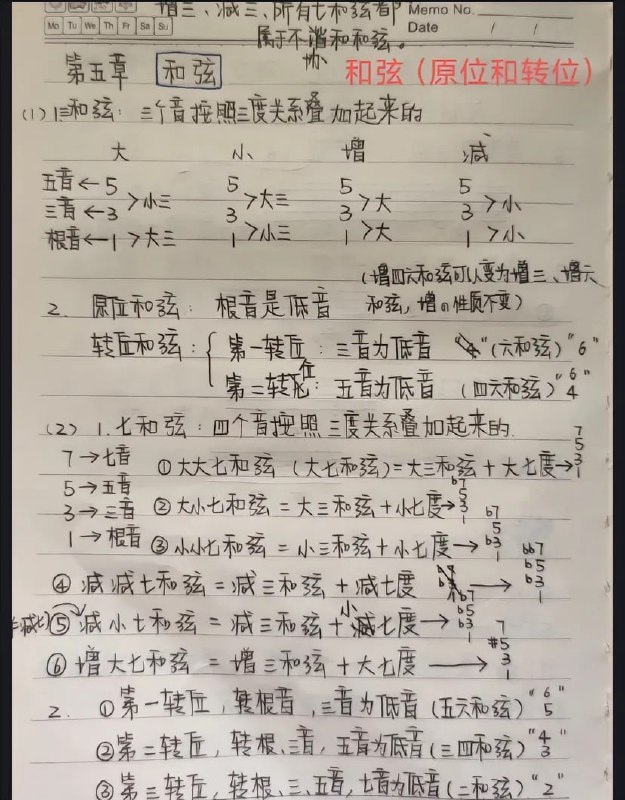 增三、减三、所有七和弦都
属于不谐和和弦。
协
Memo No.
Mo Tu We Th Fr Sa Su
Date / /
第五章 和弦
和弦（原位和转位）
(1) 1三和弦：三个音按照三度关系叠加起来的
大 小 增 减
五音←5 5 5 5
>小三 >大三 >大 >小
三音←3 3 3 3
>大三 >小三 >大 >小
根音←1 1 1 1
(增四六和弦可以变为增三、增六
和弦，增的性质不变)
2. 原位和弦：根音是低音
转位和弦：
第一转位：三音为低音 (六和弦) "6"
第二转位：五音为低音 (四六和弦) "6 4"
(2) 1.七和弦：四个音按照三度关系叠加起来的.
7→七音
5→五音
3→三音
1→根音
①大大七和弦 (大七和弦)=大三和弦+大七度→7 5 3 1
②大小七和弦=大三和弦+小七度→b7 5 3 1
③小小七和弦=小三和弦+小七度→b7 5 b3 1
④减减七和弦=减三和弦+减七度→bb7 b5 b3 1
⑤减小七和弦=减三和弦+小七度→b7 b5 b3 1
⑥增大七和弦=增三和弦+大七度→7 #5 3 1
2. ①第一转位，转根音，三音为低音(五六和弦) "6 5"
②第二转位，转根、三音，五音为低音(三四和弦) "4 3"
③第三转位，转根、三、五音，七音为低音(二和弦) "2"